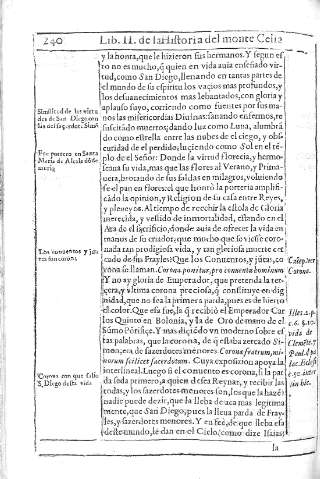 240 Lib. II. de la Historia del monte Celia
y la honra, que le hizieron sus hermanos. Y segun es
to no es mucho, q̃ quien en vida auia enseñado vir-
tud, como San Diego, llenando en tantas partes de
el mundo de su espiritu los vazios mas profundos, y
los desuanecimientos mas leuantados, con gloria y
aplauso suyo, corriendo como fuentes por sus ma-
nos las misericordias Diuinas: sanando enfermos, re
suscitādo muertos; dando luz como Luna, alumbrā
do como estrella entre las nubes de el ciego, y obs-
curidad de el perdido; luciendo como Sol en el tē-
plo de el Señor: Donde la virtud florecia, y hermo-
seaua su vida, mas que las flores al Verano, y Prima-
uera, brotando de sus faldas en milagros, voluiendo
se el pan en flores: el que honrò la porteria amplifi-
cādo la opinion, y Religion de su casa entre Reyes,
y pleueyos. Al tiempo de recebir la estola de Gloria
merecida, y vestido de inmortalidad, estando en el
Ara de el sacrificio, donde auia de ofrecer la vida en
manos de su criador: que mucho que se viesse coro-
nada tan prodigiosa vida, y tan gloriosa muerte cer
cado de sus Frayles? Que los Conuentos, y jūtas, co
rona se llaman. Corona ponitur, pro conuentu hominum
Y no ay gloria de Emperador, que pretenda la ter-
çera, y vltima corona preciosa, q̃ constituye en dig
nidad, que no sea la primera parda, pues es de hierro
el color. Que essa fuè, la q̃ recibiò el Emperador Car
los Quinto en Bolonia, y la de Oro de mano de el
Sūmo Pōtifice. Y mas digo, vn moderno sobre es
tas palabras, que la corona, de q̃ estaba zercado Si-
mon, era de sazerdotes menores
minorum scilicet sacerdotum. Cuya exposicion apoya la
interlineal. Luego si el conuento es corona, si la par
da seda primero, a quien desea Reynar, y recibir las
todas, y los sazerdotes menores son, los que la hazē
nadie puede dezir, que la lleba de aca mas legitima
mente, que San Diego, pues la lleua parda de Fray-
les, y sazerdotes menores. Y en feè, de que lleba esa
deste mundo, le dan en el Cielo, como dize Isaias
la
San Diego con
Fue portero en Santa
Maria de
Los conuentos y jun
tas son corona.
Corona con que salio
S. Diego desta vida
Corona.
vida de